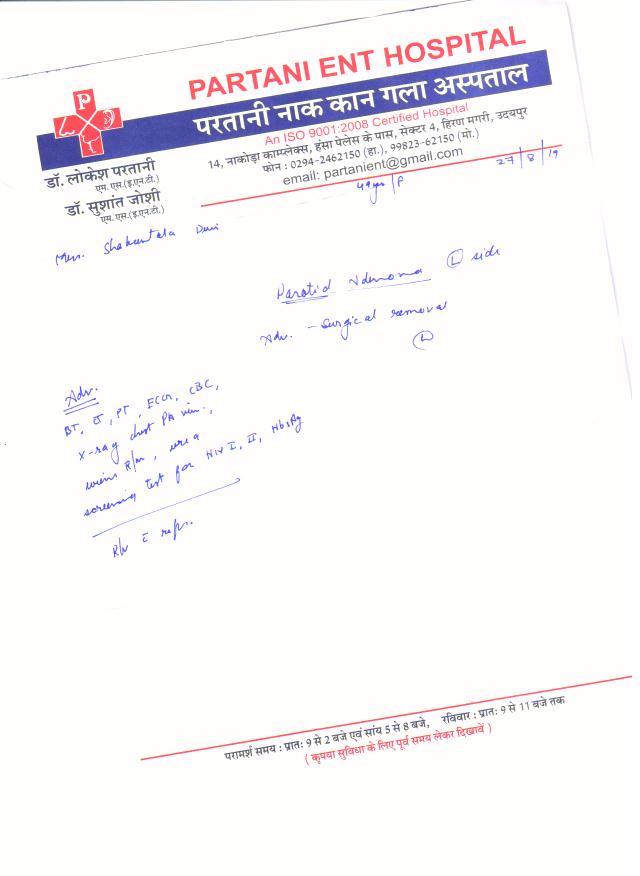 PARTANI ENT HOSPITAL
परतानी नाक कान गला अस्पताल
An ISO 9001:2008 Certified Hospital
14, नाकोड़ा काम्प्लेक्स, हंसा पेलेस के पास, सेक्टर 4, हिरण मगरी, उदयपुर
फोन : 0294-2462150 (हा.), 99823-62150 (मो.)
email: partanient@gmail.com
डॉ. लोकेश परतानी
एम. एस.(इ.एन.टी.)
डॉ. सुशांत जोशी
एम. एस.(इ.एन.टी.)
27/8/19
/F
Mrs. Shakuntala Devi
Parotid Adenoma (L) side
Adv. - Surgical removal
(L)
Adv.
BT, CT, PT, ECG, CBC,
X-ray chest PA view,
urine R/m, urea
screening test for HIV I, II, HbsAg
R/v c repr.
परामर्श समय : प्रातः 9 से 2 बजे एवं सांय 5 से 8 बजे, रविवार : प्रातः 9 से 11 बजे तक
( कृपया सुविधा के लिए पूर्व समय लेकर दिखावें )